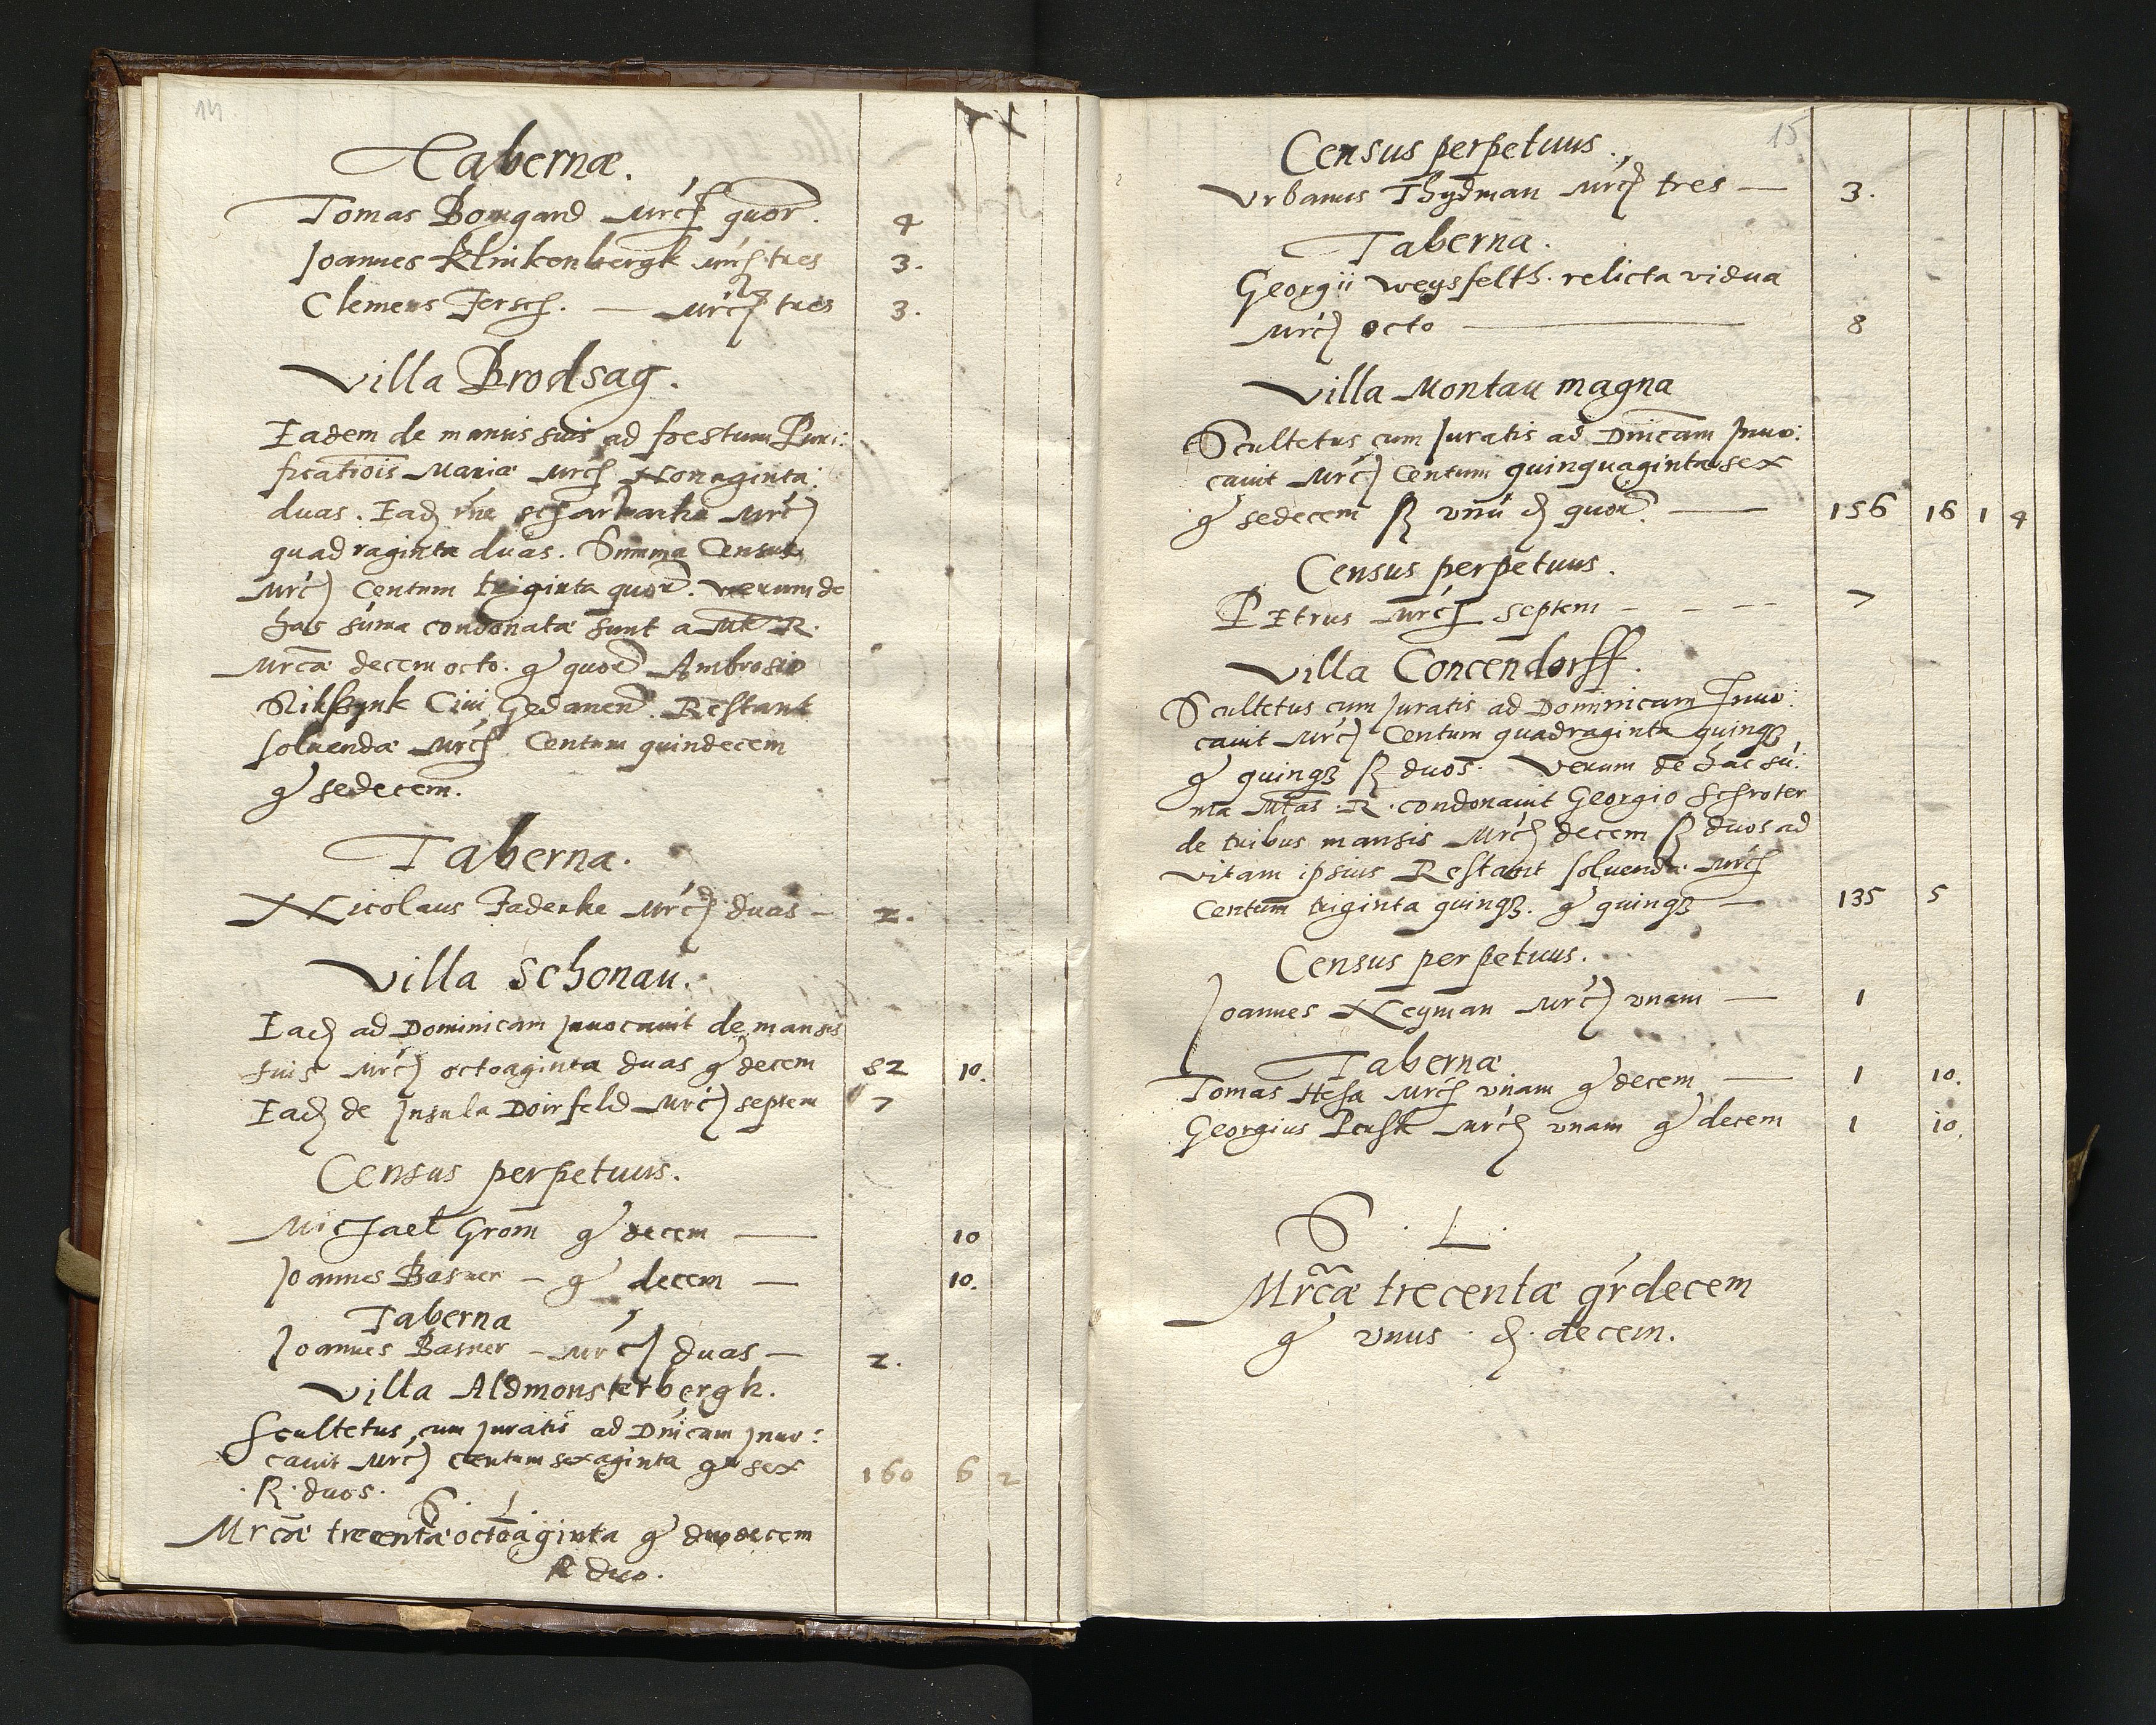 14
Tabernæ.
Tomas Bomgard mrcħ quor. 4
Joannes Klinkenbergk mrcħ tres 3.
Clemens Fersch. — mrcħ tres 3.
Villa Brodsag.
Eadem de mansis suis ad festum Puri:
ficatiois Mariæ mrcħ Nonaginta:
duas. Eadħ scharwarke mrc)
quadraginta duas. Summa Census
mrc) Centum triginta quor. verum de
has suma condonatæ sunt a Mte R.
Mrcæ decem octo. g quor Ambrosio
Civi Gedanen. Restant
soluendæ mrcħ Centum quindecem
g sedecem.
Taberna.
Nicolaus Faderke mrcħ duas — 2.
Villa Schonau.
Eadħ ad Dominicam Inuocauit de mansis
suis mrc) octoaginta duas g decem 82 10.
Eadħ de Insula Doirfeld mrc) septem 7
Census perpetuus.
Michael Grom g decem — 10
Joannes Basner — g decem — 10.
Taberna
Joannes Basner — mrc) duas — 2.
Villa Aldmonsterbergk.
Scultetus cum Juratis ad Dnicam Inuo:
cauit mrc) Centum sexaginta g sex 160 6 2
ß duos.
S. L.
Mrcæ trecentæ octoaginta g duodecem
ß duo.
15
Census perpetuus.
Vrbanus Thydman mrcħ tres — 3.
Taberna.
Georgii Weysfelth. relicta vidua
mrc) octo — 8
Villa Montau magna
Scultetus cum Juratis ad Dnicam Inuo:
cauit mrc) Centum quinquaginta sex
g sedecem ß vnu ð quor. — 156 16 1 4
Census perpetuus.
Petrus mrcħ septem — — — 7
Villa Concendorff.
Scultetus cum Juratis ad Dominicam Inuo:
cauit mrc) Centum quadraginta quinqꝫ
g quinqꝫ ß duos. Verum de hac su:
ma Mtas. R. condonauit Georgio Schroter
de tribus mansis mrcħ decem ß duos ad
vitam ipsius Restant soluendæ mrcħ
Centum triginta quinqꝫ. g quinqꝫ — 135 5
Census perpetuus.
Joannes Neyman mrc) vnam — 1
Tabernæ
Tomas Hesa mrcħ vnam g decem — 1 10.
Georgius mrcħ vnam g decem 1 10.
S. L.
Mrcæ trecentæ qrdecem
g vnus ð decem.